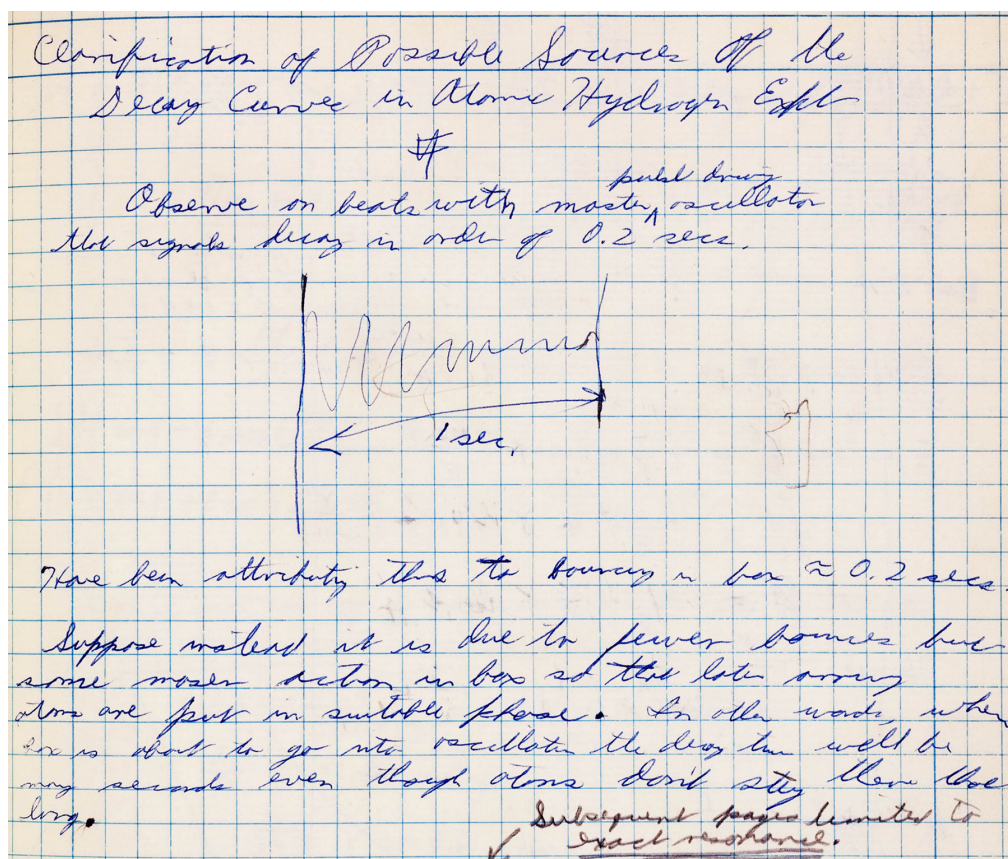 Clarification of Possible Sources Of the
Decay Curve in Atomic Hydrogen Expt
Observe on beats with master pulsd driving oscillator
that signals decay in order of 0.2 secs.
1 sec.
Have been attributing this to bouncing in box ≈ 0.2 secs.
Suppose instead it is due to fewer bounces but
some maser action in box so that later arriving
atoms are put in suitable phase. In other words, when
box is about to go into oscillation the decay time will be
many seconds even though atoms don't stay there that
long.
Subsequent pages limited to
exact resonance.